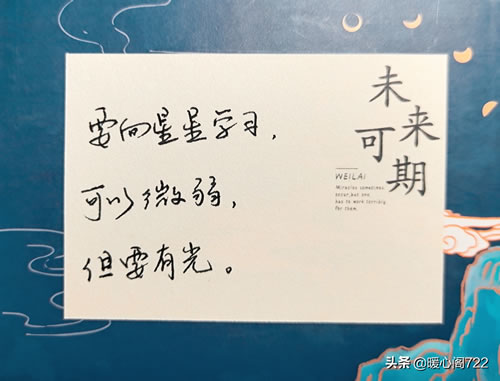 要向星星学习，
可以微弱，
但要有光。
未来
可期
WEILAI
Miracles sometimes
occur, but one
has to work terribly
for them.
头条 @暖心阁722